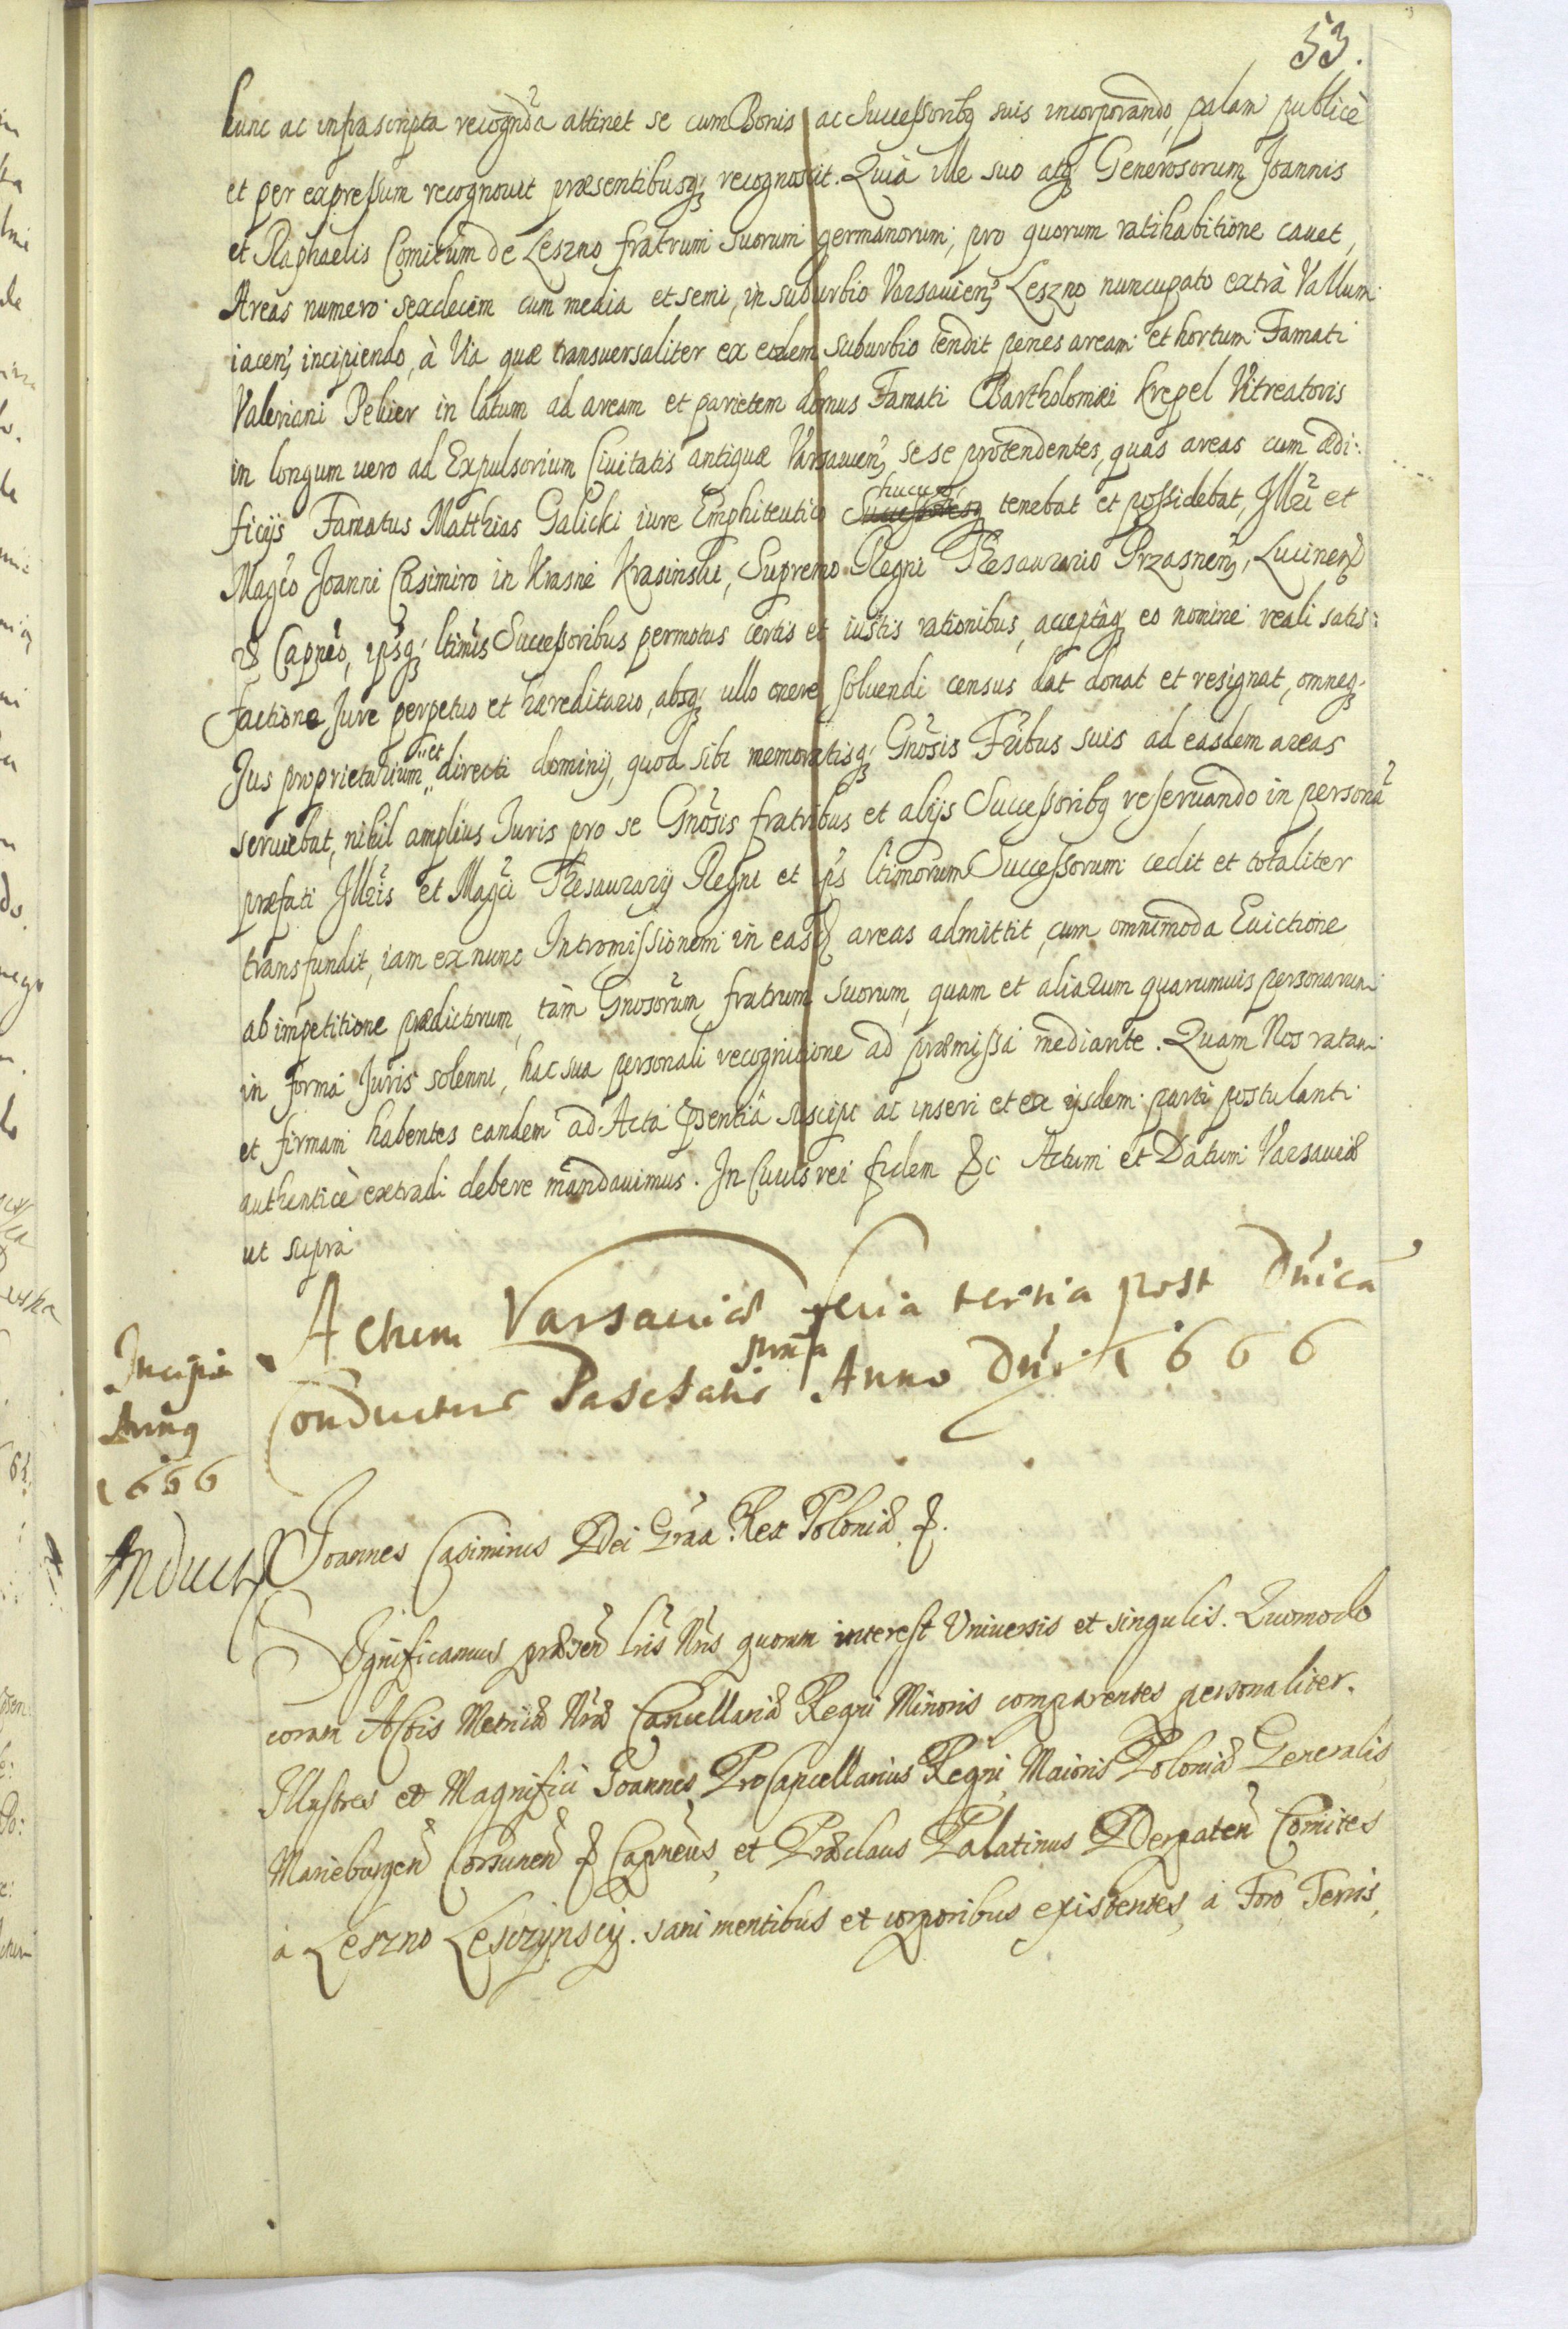 53.
hunc ac infrascripta recognda attinet se cum Bonis ac Successoribq suis incorporando, palam publicè
et per expressum recognouit præsentibusq; recognoscit. Quià ille suo atq; Generosorum Joannis
et Raphaelis Comitum de Leszno fratrum suorum germanorum, pro quorum ratihabitione cauet,
Areas numero sexdecim cum media et semi, in suburbio Varsauien, Leszno nuncupato extrà Vallum
iacen, incipiendo, à Via quæ transuersaliter ex eodem suburbio tendit penes aream et hortum Famati
Valeriani Pelier in latum ad aream et parietem domus Famati Bartholomæi Krepel Vitreatoris
in longum uero ad Expulsorium Ciuitatis antiquæ Varsauien, se se protendentes, quas areas cum ædi:
ficijs Famatus Matthias Galicki iure Emphiteutico hucusq tenebat et possidebat, Illri et
Magco Joanni Casimiro in Krasne Krasinski, Supremo Regni Thesaurario Przasnen, Lucinen
& Capneo, ipsq; ltimis Successoribus permotus certis et iustis rationibus, acceptâq; eo nomine reali satis:
factione Jure perpetuo et hæreditario, absq; ullo onere soluendi census dat donat et resignat, omneq;
Jus proprietarium et directi dominij, quod sibi memoratisq; Gnosis Fribus suis ad easdem areas
seruiebat, nihil amplius Juris pro se Gnosis fratribus et alijs Successoribq reseruando in persona
præfati Illris et Magci Thesaurarij Regni et ips ltimorum Successorum cedit et totaliter
transfundit, iam ex nunc Intromissionem in easd areas admittit, cum omnimoda Euictione
ab impetitione prædictorum, tàm Gnosorum fratrum suorum, quam et aliarum quarumuis personarum
in forma Juris solenni, hac sua personali recognitione ad præmissa mediante. Quam Nos ratam
et firmam habentes eandem ad Acta psentiâ suscipi ac inseri et ex ijsdem parti postulanti
authenticè extradi debere mandauimus. In Cuius rei fidem &c Actum et Datum Varsauiæ
ut supra
Actum Varsauiæ feria tertia post Dnicã
Conductus Paschatis prima Anno Dni 1666
Incipit
Annq
1666
Joannes Casimirus Dei Grãa Rex Poloniæ &.
Induct
Significamus præsen lris Nris quorum interest Vniuersis et singulis. Quomodo
coram Actis Metricæ Nræ Cancellariæ Regni Minoris comparentes personaliter.
Illustres et Magnifici Joannes ProCancellarius Regni, Maioris Poloniæ Generalis
Marieburgen Corsunen & Capneus, et Præclaus Palatinus Derpaten Comites
à Leszno Lesczynscij. sani mentibus et corporibus existentes, à Foro, Terris,